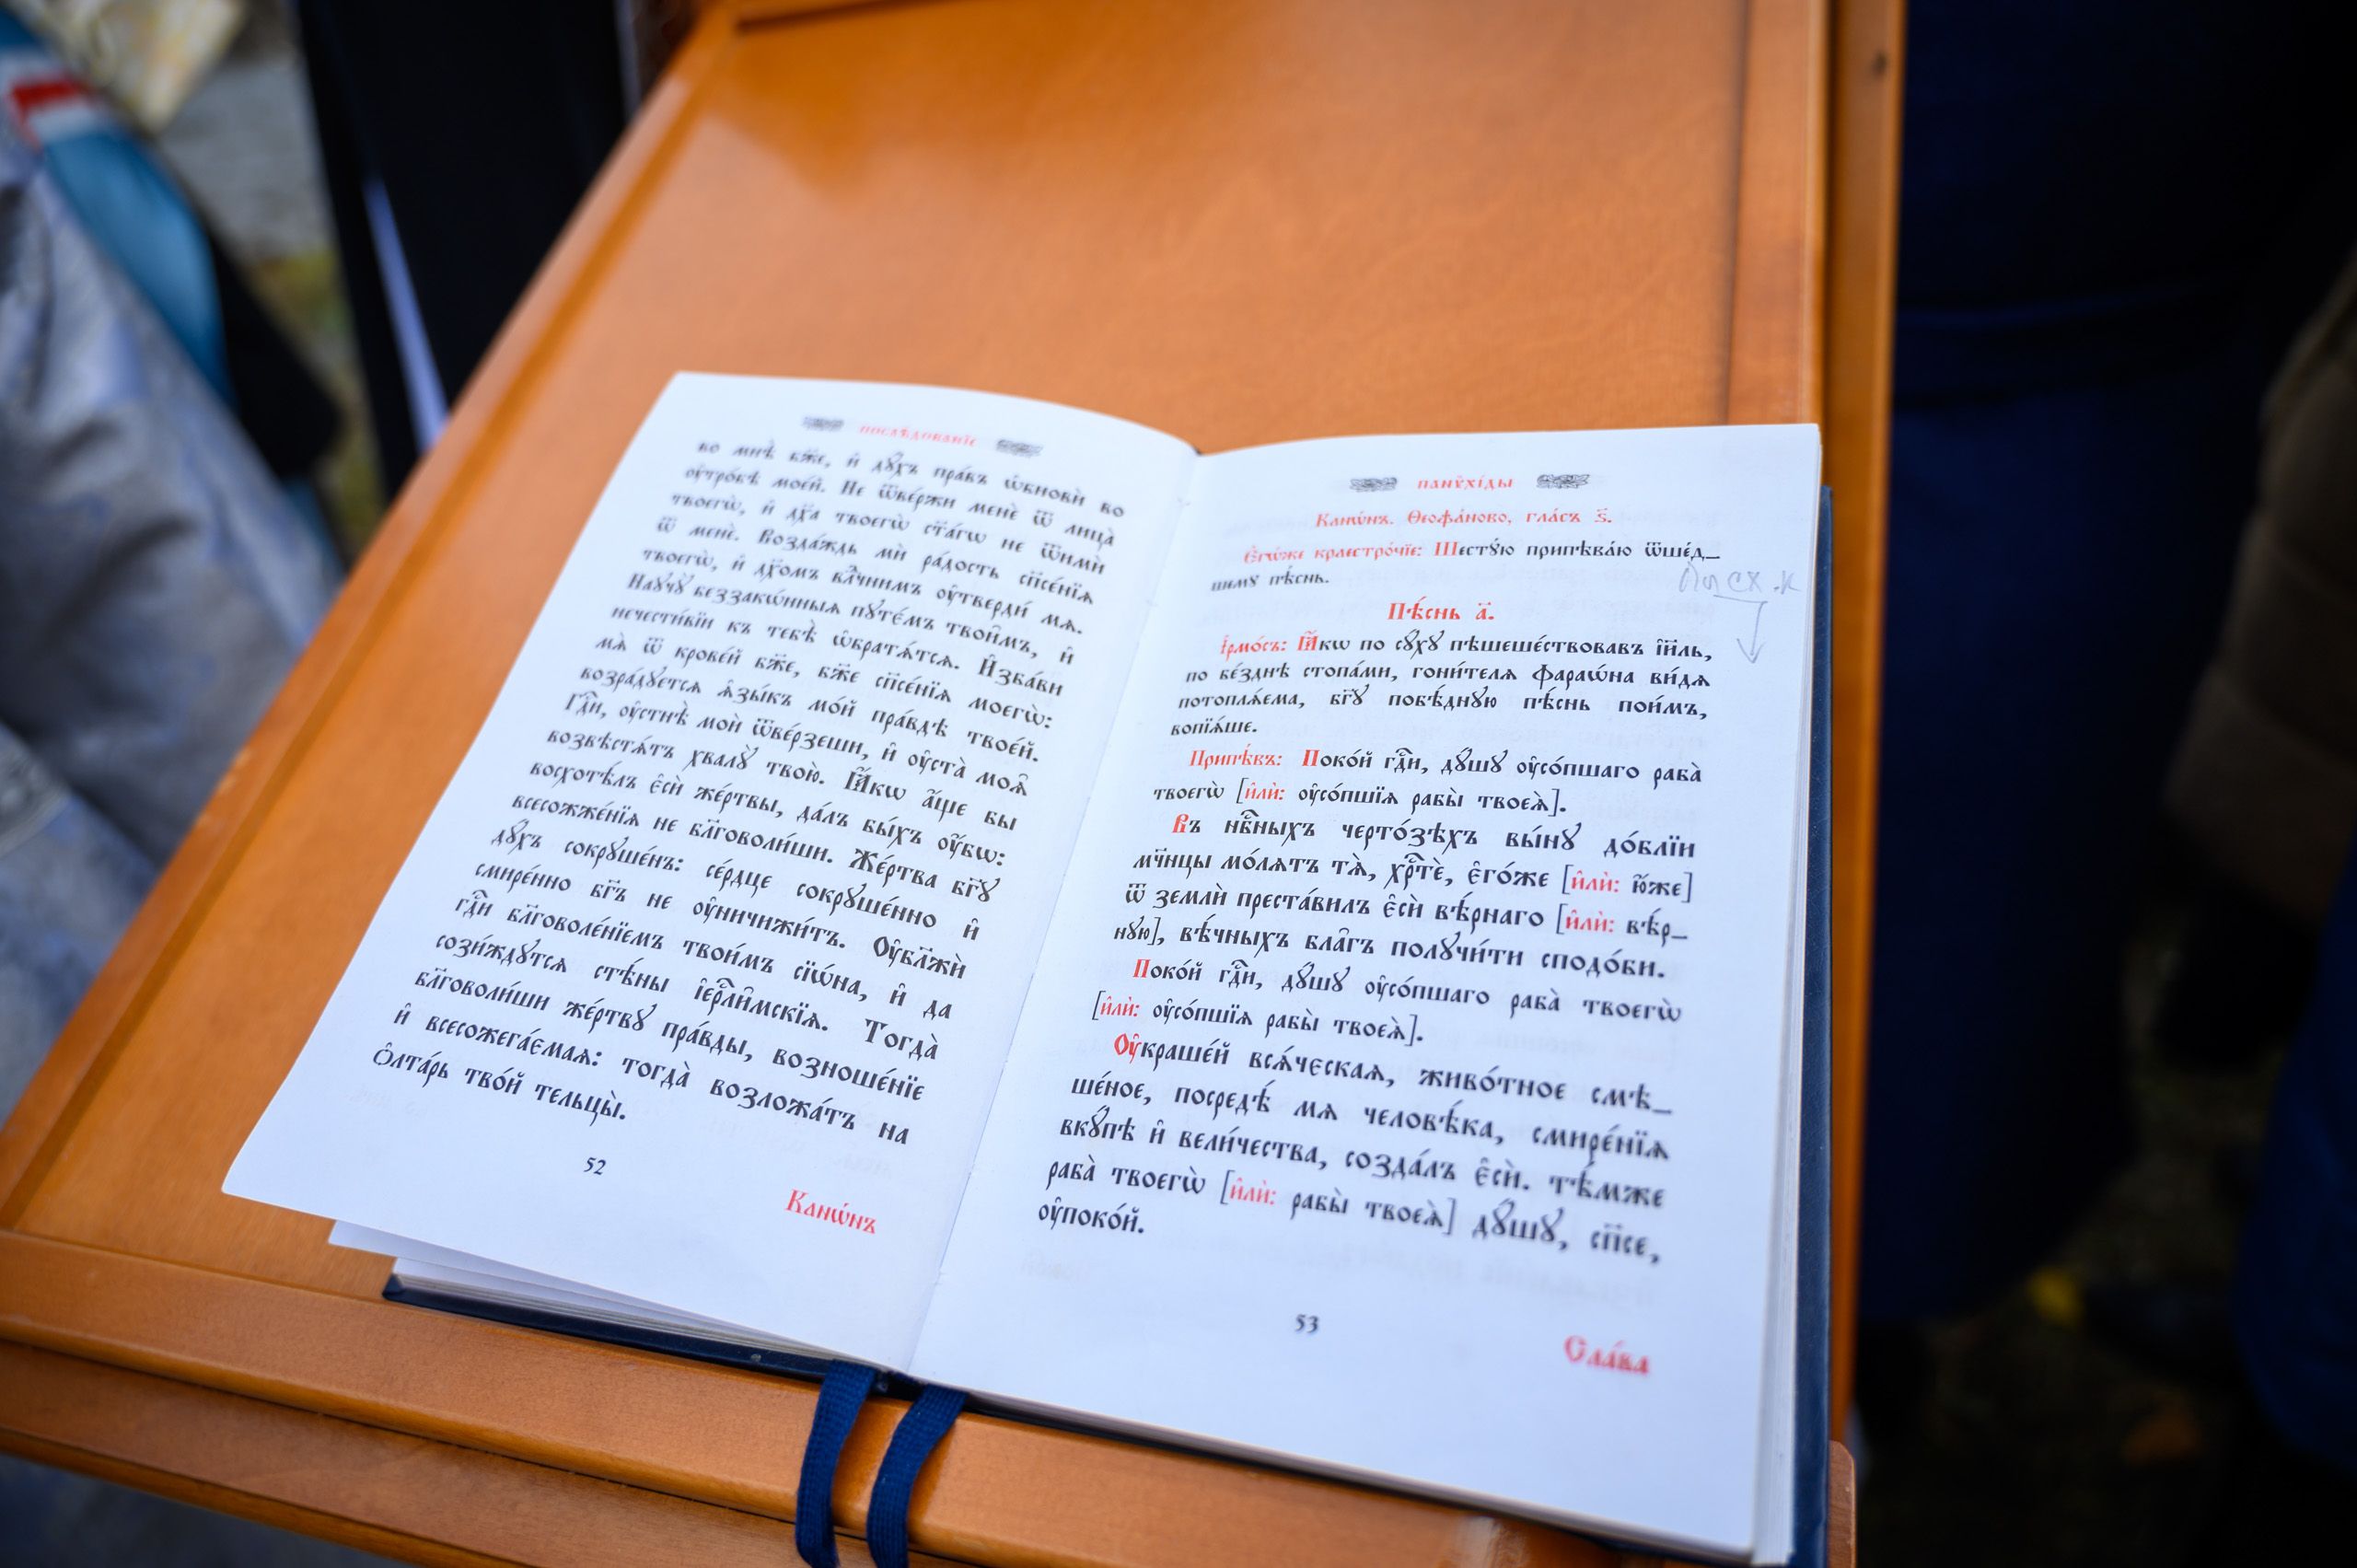 послѣ́дованїе
во мнѣ̀ бж҃е, и҆ дꙋ́хъ пра́въ ѡ҆бновѝ во
ᲂу҆тро́бѣ мое́й. Не ѿве́ржи менѐ ѿ лица̀
твоегѡ̀, и҆ дх҃а твоегѡ̀ ст҃а́гѡ не ѿимѝ
ѿ менѐ. Возда́ждь мѝ ра́дость сп҃се́нїѧ
твоегѡ̀, и҆ дх҃омъ влⷣчнимъ ᲂу҆твердѝ мѧ.
Наꙋчꙋ̀ беззакѡ́нныѧ пꙋте́мъ твои̑мъ, и҆
нечести́вїи къ тебѣ̀ ѡ҆братѧ́тсѧ. И҆зба́ви
мѧ̀ ѿ крове́й бж҃е, бж҃е сп҃се́нїѧ моегѡ̀:
возра́дꙋетсѧ ѧ҆зы́къ мо́й пра́вдѣ твое́й.
Гдⷭ҇и, ᲂу҆стнѣ̀ моѝ ѿве́рзеши, и҆ ᲂу҆ста̀ моѧ̑
возвѣстѧ́тъ хвалꙋ̀ твою̀. Ꙗ҆́кѡ а҆́ще бы
восхотѣ́лъ є҆сѝ же́ртвы, да́лъ бы́хъ ᲂу҆́бѡ:
всесожже́нїѧ не бл҃говоли́ши. Же́ртва бг҃ꙋ
дꙋ́хъ сокрꙋше́нъ: се́рдце сокрꙋше́нно и҆
смире́нно бг҃ъ не ᲂу҆ничижи́тъ. Оу҆бл҃жѝ
гдⷭ҇и бл҃говоле́нїемъ твои́мъ сїѡ́на, и҆ да
сози́ждꙋтсѧ стѣ́ны і҆ерⷭ҇ли̑мскїѧ. Тогда̀
бл҃говоли́ши же́ртвꙋ пра́вды, возноше́нїе
и҆ всесожега́ємаѧ: тогда̀ возложа́тъ на
Ѻ҆лта́рь тво́й тельцы̀.
52
Канѡ́нъ
панѷхі́ды
Канѡ́нъ. Ѳеофа́ново, гла́съ ѕ҃.
Є҆гѡ́же краестро́чїе: Шестꙋ́ю припѣва́ю ѿше́д_
шемꙋ пѣ́снь.
Пѣ́снь а҃.
І҆рмо́съ: Ꙗ҆́кѡ по сꙋ́хꙋ пѣшеше́ствовавъ і҆и҃ль,
по бе́зднѣ стопа́ми, гони́телѧ фараѡ́на ви́дѧ
потоплѧ́ема, бг҃ꙋ побѣ́днꙋю пѣ́снь пои́мъ,
вопїѧ́ше.
Припѣ́въ: Поко́й гдⷭ҇и, дꙋ́шꙋ ᲂу҆со́пшаго раба̀
твоегѡ̀ [и҆лѝ: ᲂу҆со́пшїѧ рабы̀ твоеѧ̀].
Въ нбⷭ҇ныхъ черто́зѣхъ вы́нꙋ до́блїи
мч҃нцы мо́лѧтъ тѧ̀, хрⷭ҇тѐ, є҆го́же [и҆лѝ: ю҆́же]
ѿ землѝ преста́вилъ є҆сѝ вѣ́рнаго [и҆лѝ: вѣ́р_
нꙋю], вѣ́чныхъ бла̑гъ полꙋчи́ти сподо́би.
Поко́й гдⷭ҇и, дꙋ́шꙋ ᲂу҆со́пшаго раба̀ твоегѡ̀
[и҆лѝ: ᲂу҆со́пшїѧ рабы̀ твоеѧ̀].
Оу҆краше́й всѧ́ческая, живо́тное смѣ_
ше́ное, посредѣ́ мѧ человѣ́ка, смире́нїѧ
вкꙋ́пѣ и҆ вели́чества, созда́лъ є҆сѝ. тѣ́мже
раба̀ твоегѡ̀ [и҆лѝ: рабы̀ твоеѧ̀] дꙋ́шꙋ, сп҃се,
ᲂу҆поко́й.
53
Сла́ва